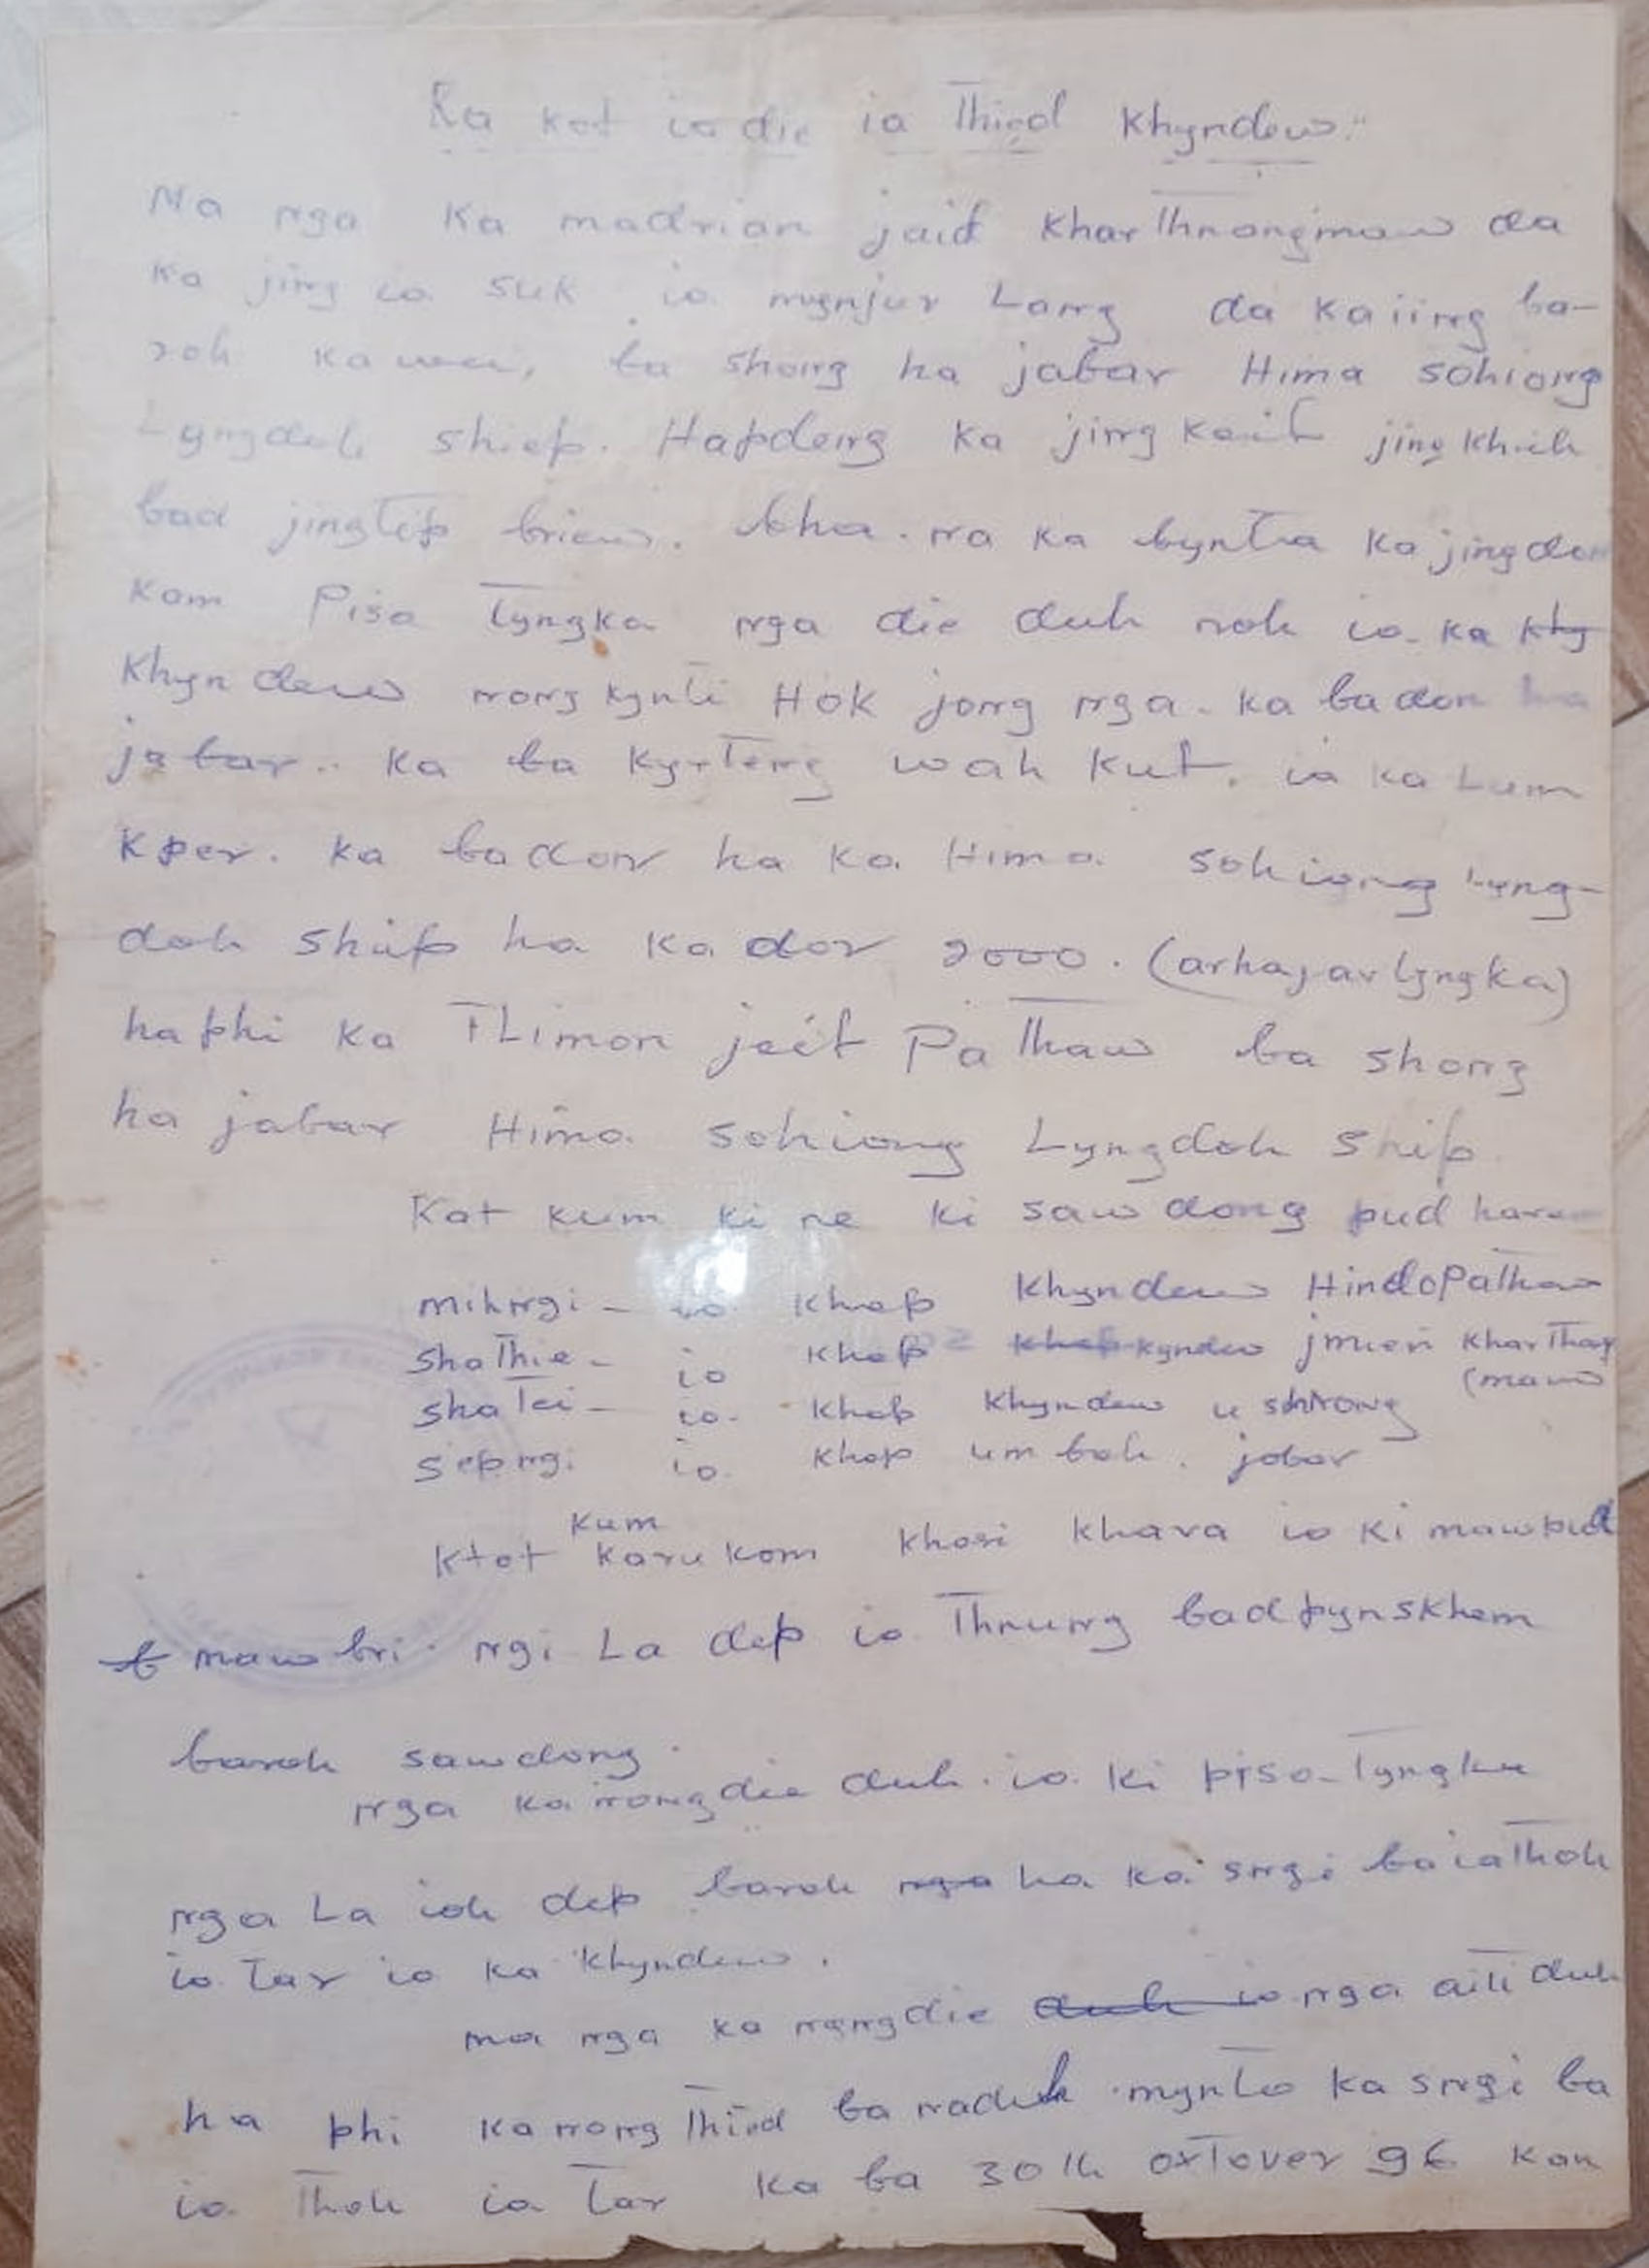 Ka kot iadie ia Thied Khyndew."
Ma nga Ka madrian jait Khar Thnongmaw da
Ka jing ia suk ia mynjur Lang da Kaiing ba-
roh Kawei, ba shong ha jabar Hima sohiong
Lyngdoh shiep. Hapdeng Ka jing Kait jing Khieh
bad jingtip briew. bha. na Ka bynta Ka jing don
Kam Pisa Tyngka nga die duh noh ia Ka Khy
Khyndew nong kynti HOK jong nga. Ka badon ha
jabar.. Ka ba Kyrteng wah Kut. ia Ka Lum
Kper. Ka badon ha Ka Hima sohiong Lyng-
doh Shiip ha Ka dor 2000. (arhajar lyngka)
haphi Ka TLimon jeit Pa Thaw ba shong
ha jabar Hima sohiong Lyngdoh Ship.
Kat kum ki ne ki saw dong pud hara
mihngi - ia Khap Khyndew HindoPathaw
sha Thie - ia Khap Khap kyndew jmien KharThang
(maw
sha Tei - ia Khap Khyndew u shrong
sepngi ia Khap um boh. jabar
kum
Ktot karukom khasi khara ia Ki mawpud
b maw bri. ngi La dep ia Thnung bad pynskhem
baroh sawdong.
nga ka nongdie duh. ia Ki pisa-Tyngka
nga La ioh dep baroh nga ha ka sngi ba iaThoh
ia Tar ia ka Khyndew.
ma nga ka nongdie duh ia nga aiti duh
ha phi Ka nong Thied ba naduh mynta Ka sngi ba
ia Thoh ia Tar Ka ba 30th oxTover 96 Kan